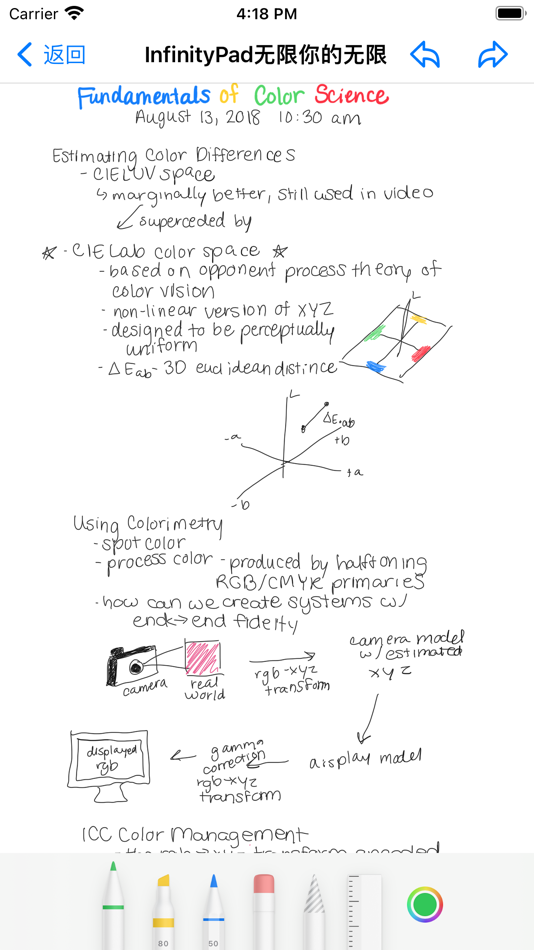 Carrier 4:18 PM
返回 InfinityPad无限你的无限
Fundamentals of Color Science
August 13, 2018 10:30 am
Estimating Color Differences
- CIELUV space
↳ marginally better, still used in video
superceded by
☆ - CIELab color space ☆
- based on opponent process theory of
color vision
- non-linear version of XYZ
- designed to be perceptually
uniform
- ΔEab - 3D euclidean distince
L
L
ΔE*ab
-a
+b
+a
-b
Using Colorimetry
- spot color
- process color - produced by halftoning
RGB/CMYK primaries
- how can we create systems w/
end→end fidelty
camera
real
world
rgb-xyz
transform
camera model
w/ estimated
xyz
display model
gamma
correction
rgb-xyz
transform
displayed
rgb
ICC Color Management
80
50